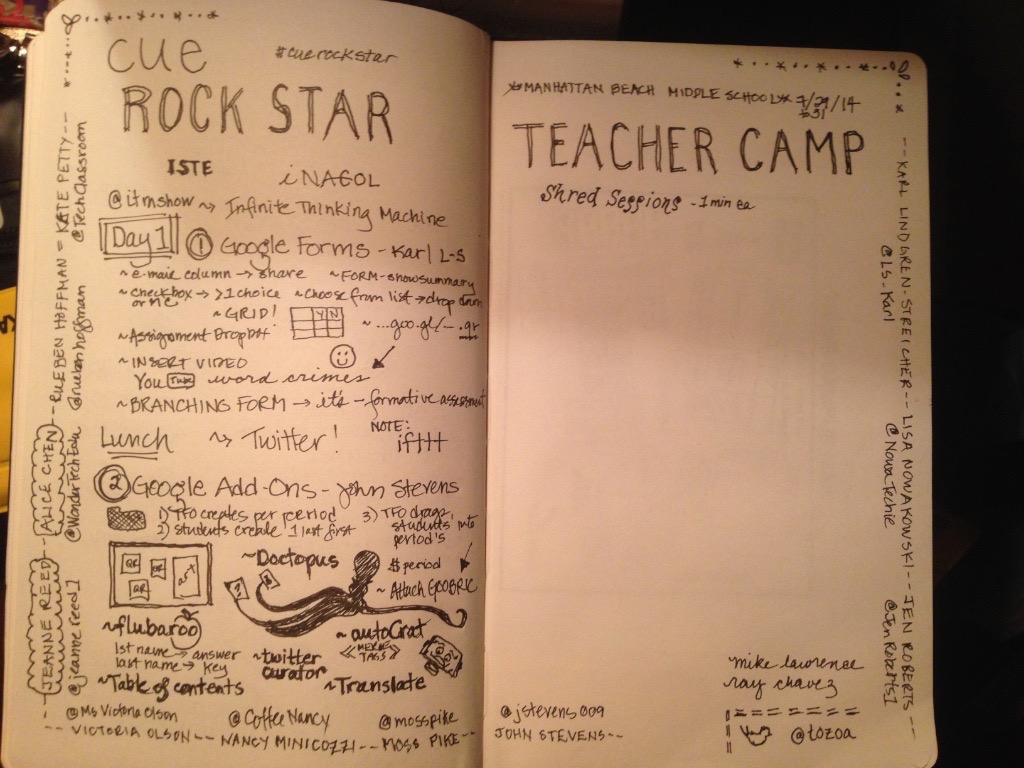 cue
#cuerockstar
ROCK STAR
ISTE
iNACOL
@itmshow ~> Infinite Thinking Machine
Day 1
① Google Forms - Karl L-S
~ e-mail column → share ~ FORM - show summary
~ checkbox → >1 choice ~ choose from list → drop down
or MC
~ GRID! Y N
~ Assignment DropOff ~ ...goo.gl/--.qr
~ INSERT VIDEO
You Tube word crimes
~ BRANCHING FORM → it's - formative assessment
Lunch ~> Twitter! NOTE:
ifttt
② Google Add-Ons - John Stevens
1) TFO creates per period 3) TFO drags
2) students create 1 last first students into
period's
QR QR QR art
~ Doctopus
$ period
~ Attach GOOBRIC
~ flubaroo
1st name → answer
last name → key
~ autoCrat
<<MERGE
TAGS>>
~ twitter
curator
~ Table of contents
~ Translate
@MsVictoriaOlson @CoffeeNancy @mosspike
-- VICTORIA OLSON -- NANCY MINICOZZI -- MOSS PIKE --
-- JEANNE REED -- ALICE CHEN -- RUEBEN HOFFMAN = KATE PETTY --
@jeannereed1 @WonderTechEdu @ruebenhoffman @TechClassroom
*MANHATTAN BEACH MIDDLE SCHOOL* 7/29/14
31
TEACHER CAMP
Shred Sessions - 1 min ea
-- KARL LINDGREN-STREICHER -- LISA NOWAKOWSKI -- JEN ROBERTS --
@LS_Karl @NowaTechie @JenRoberts1
mike lawrence
ray chavez
@jstevens009
JOHN STEVENS --
@tozoa